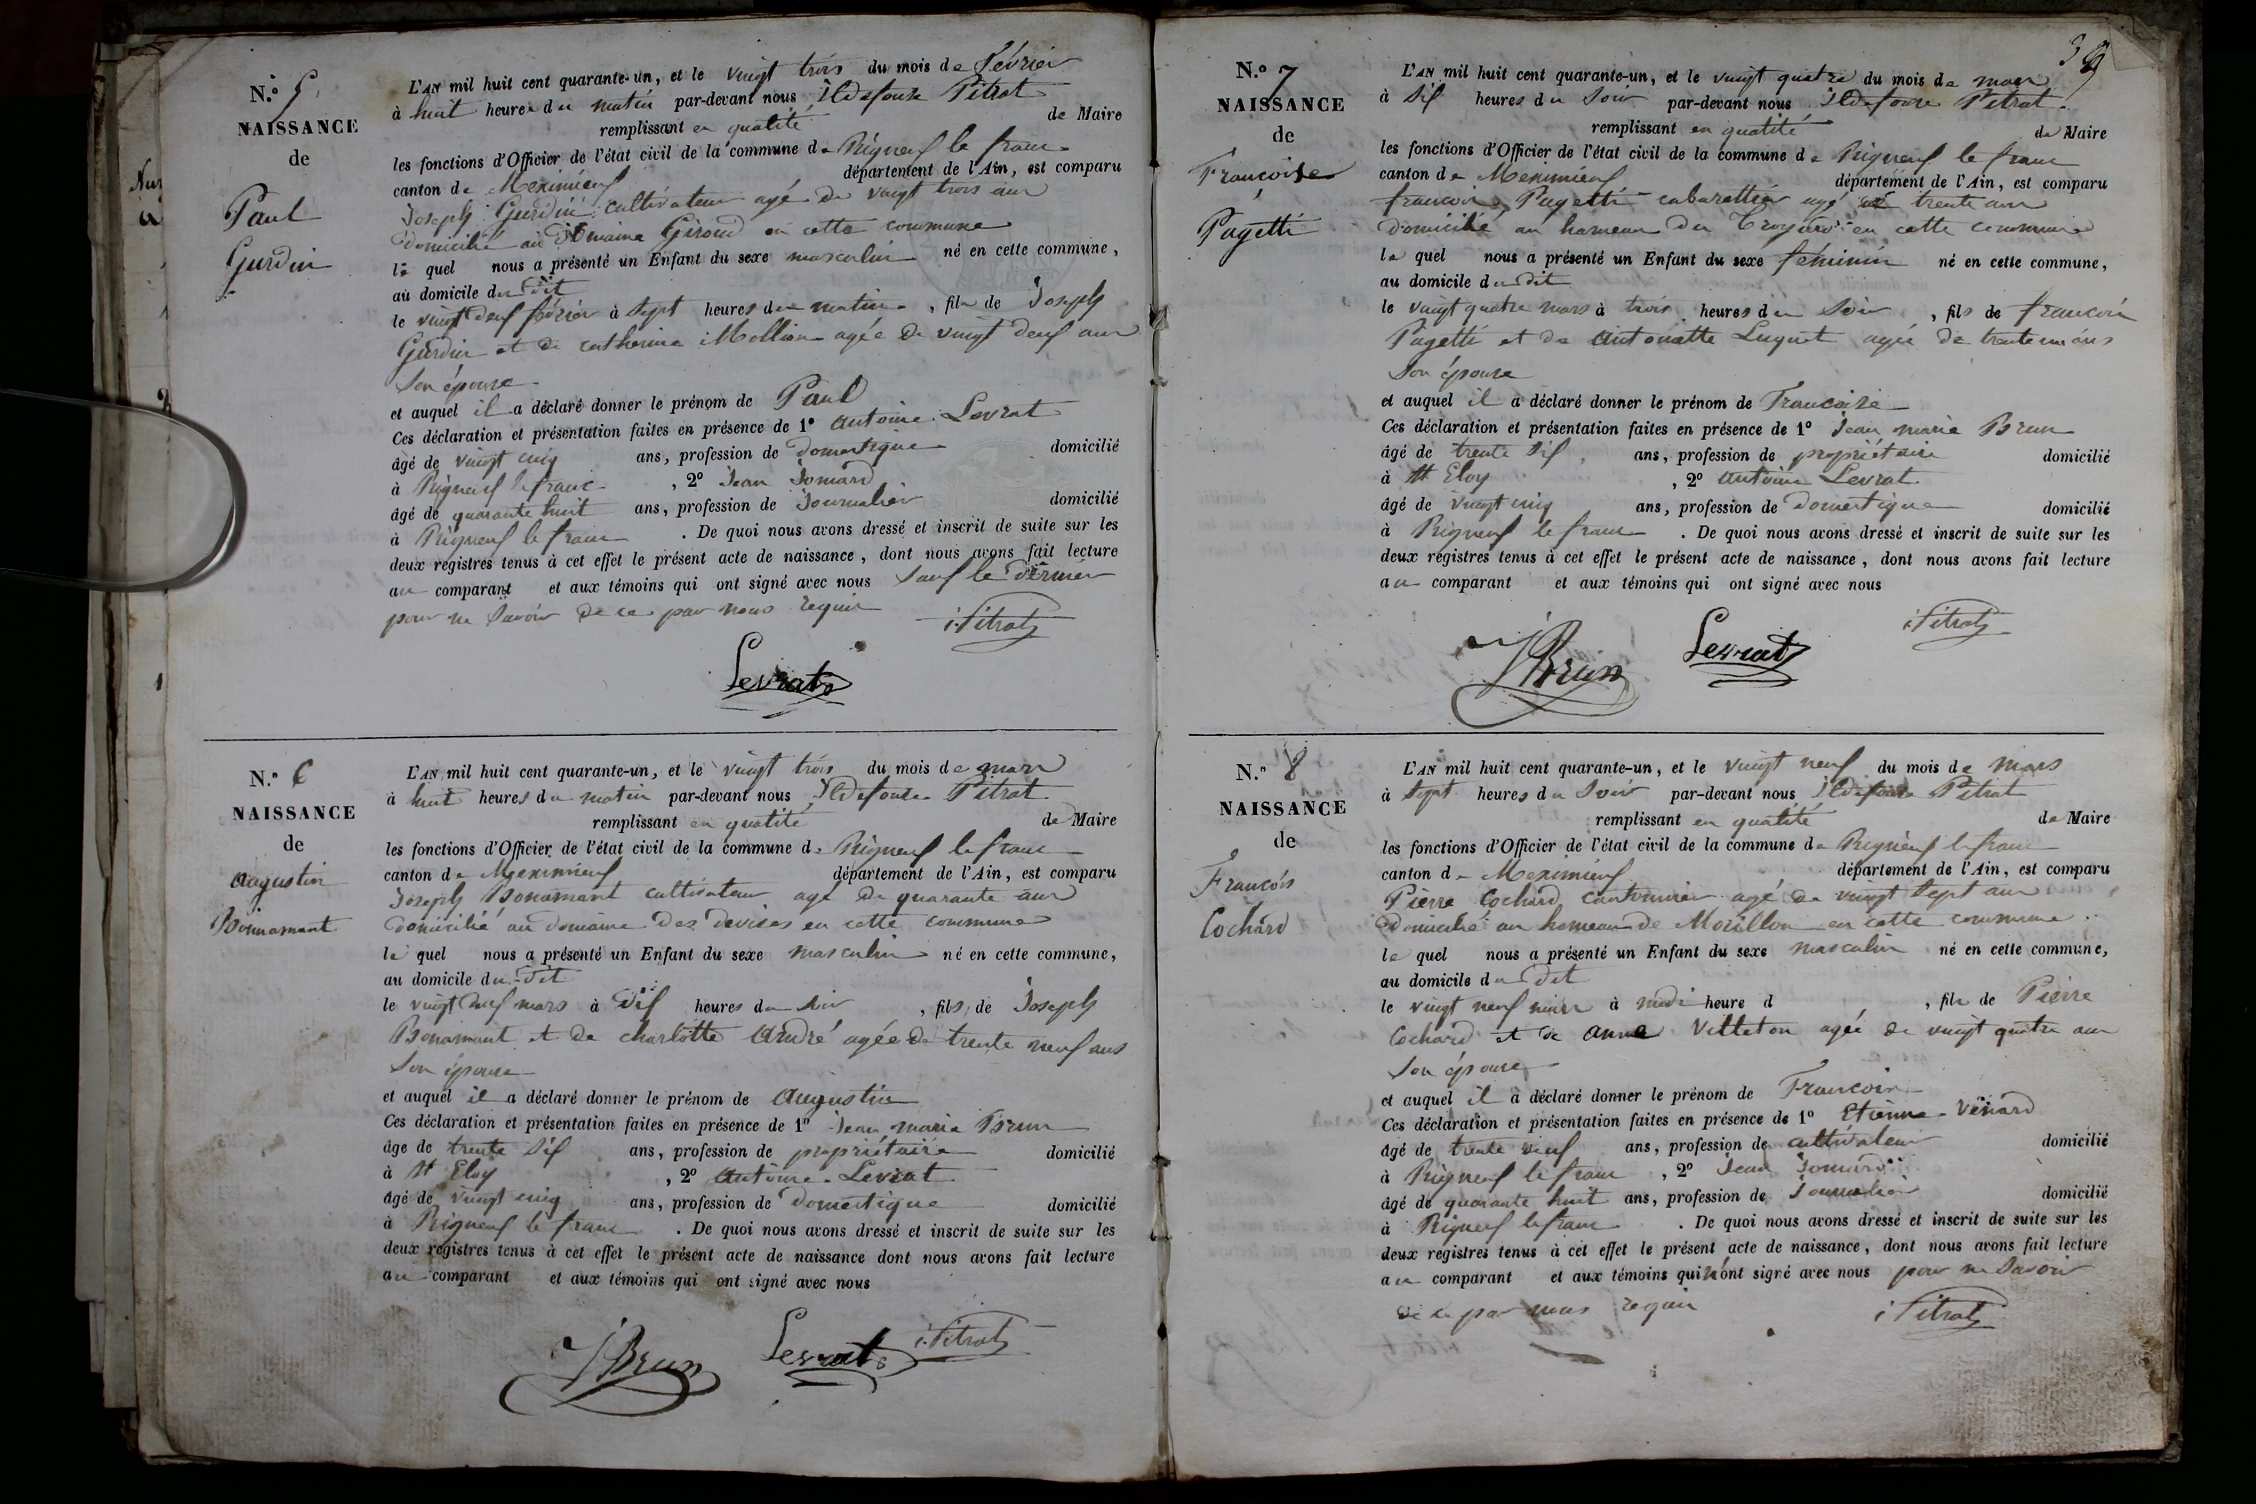 N.o 5
NAISSANCE
de
Paul
Gurdin
L'AN mil huit cent quarante-un, et le vingt trois du mois de février
à huit heures du matin par-devant nous Ildefonse Pitrat
remplissant en qualité de Maire
les fonctions d'Officier de l'état civil de la commune de Rigneux le franc
canton de Meximieux département de l'Ain, est comparu
Joseph Gurdin cultivateur agé de vingt trois ans
domicilié au domaine Giroud en cette commune
le quel nous a présenté un Enfant du sexe masculin né en cette commune,
au domicile du dit
le vingt deux février à sept heures du matin, fils de Joseph
Gurdin et de catherine Mollion agée de vingt deux ans
son épouse
et auquel il a déclaré donner le prénom de Paul
Ces déclaration et présentation faites en présence de 1o antoine Levrat
âgé de vingt cinq ans, profession de domestique domicilié
à Rigneux le franc, 2o Jean Jomard
âgé de quarante huit ans, profession de Journalier domicilié
à Rigneux le franc. De quoi nous avons dressé et inscrit de suite sur les
deux registres tenus à cet effet le présent acte de naissance, dont nous avons fait lecture
au comparant et aux témoins qui ont signé avec nous sauf le dernier
pour ne savoir de ce par nous requis
i. Pitrat
Levrat
N.o 6
NAISSANCE
de
augustin
Bonnamant
L'AN mil huit cent quarante-un, et le vingt trois du mois de mars
à huit heures du matin par-devant nous Ildefonse Pitrat
remplissant en qualité de Maire
les fonctions d'Officier de l'état civil de la commune de Rigneux le franc
canton de Meximieux département de l'Ain, est comparu
Joseph Bonamant cultivateur agé de quarante ans
domicilié au domaine des devises en cette commune
le quel nous a présenté un Enfant du sexe masculin né en cette commune,
au domicile du dit
le vingt deux mars à dix heures du soir, fils de Joseph
Bonamant et de charlotte André agée de trente neuf ans
son épouse
et auquel il a déclaré donner le prénom de augustin
Ces déclaration et présentation faites en présence de 1o Jean marie Brun
âge de trente six ans, profession de propriétaire domicilié
à St Eloy, 2o antoine Levrat
âgé de vingt cinq ans, profession de domestique domicilié
à Rigneux le franc. De quoi nous avons dressé et inscrit de suite sur les
deux registres tenus à cet effet le présent acte de naissance dont nous avons fait lecture
au comparant et aux témoins qui ont signé avec nous
JBrun Levrat i. Pitrat
39
N.o 7
NAISSANCE
de
Francoise
Pagetti
L'AN mil huit cent quarante-un, et le vingt quatre du mois de mars
à six heures du soir par-devant nous Ildefonse Pitrat
remplissant en qualité de Maire
les fonctions d'Officier de l'état civil de la commune de Rigneux le franc
canton de Meximieux département de l'Ain, est comparu
francois Pagetti cabarettier agé de trente ans
domicilié au hameau du en cette commune
le quel nous a présenté un Enfant du sexe féminin né en cette commune,
au domicile du dit
le vingt quatre mars à trois heures du soir, fils de francois
Pagetti et de antoinette Luquet agée de trente un ans
son épouse
et auquel il a déclaré donner le prénom de Francoise
Ces déclaration et présentation faites en présence de 1o Jean marie Brun
âgé de trente six ans, profession de propriétaire domicilié
à St Eloy, 2o antoine Levrat
âgé de vingt cinq ans, profession de domestique domicilié
à Rigneux le franc. De quoi nous avons dressé et inscrit de suite sur les
deux registres tenus à cet effet le présent acte de naissance, dont nous avons fait lecture
au comparant et aux témoins qui ont signé avec nous
i Pitrat
JBrun Levrat
N.o 8
NAISSANCE
de
Francois
Cochard
L'AN mil huit cent quarante-un, et le vingt neuf du mois de mars
à sept heures du soir par-devant nous Ildefonse Pitrat
remplissant en qualité de Maire
les fonctions d'Officier de l'état civil de la commune de Rigneux le franc
canton de Meximieux département de l'Ain, est comparu
Pierre Cochard cantonnier agé de vingt sept ans
domicilié au hameau de Morillon en cette commune
le quel nous a présenté un Enfant du sexe masculin né en cette commune,
au domicile du dit
le vingt neuf mars à midi heure d, fils de Pierre
Cochard et de anne Villeton agée de vingt quatre ans
son épouse
et auquel il a déclaré donner le prénom de Francois
Ces déclaration et présentation faites en présence de 1o Etienne Venard
âgé de trente neuf ans, profession de cultivateur domicilié
à Rigneux le franc, 2o Jean Jomard
âgé de quarante huit ans, profession de Journalier domicilié
à Rigneux le franc. De quoi nous avons dressé et inscrit de suite sur les
deux registres tenus à cet effet le présent acte de naissance, dont nous avons fait lecture
au comparant et aux témoins qui n'ont signé avec nous pour ne savoir
de ce par nous requis
i Pitrat